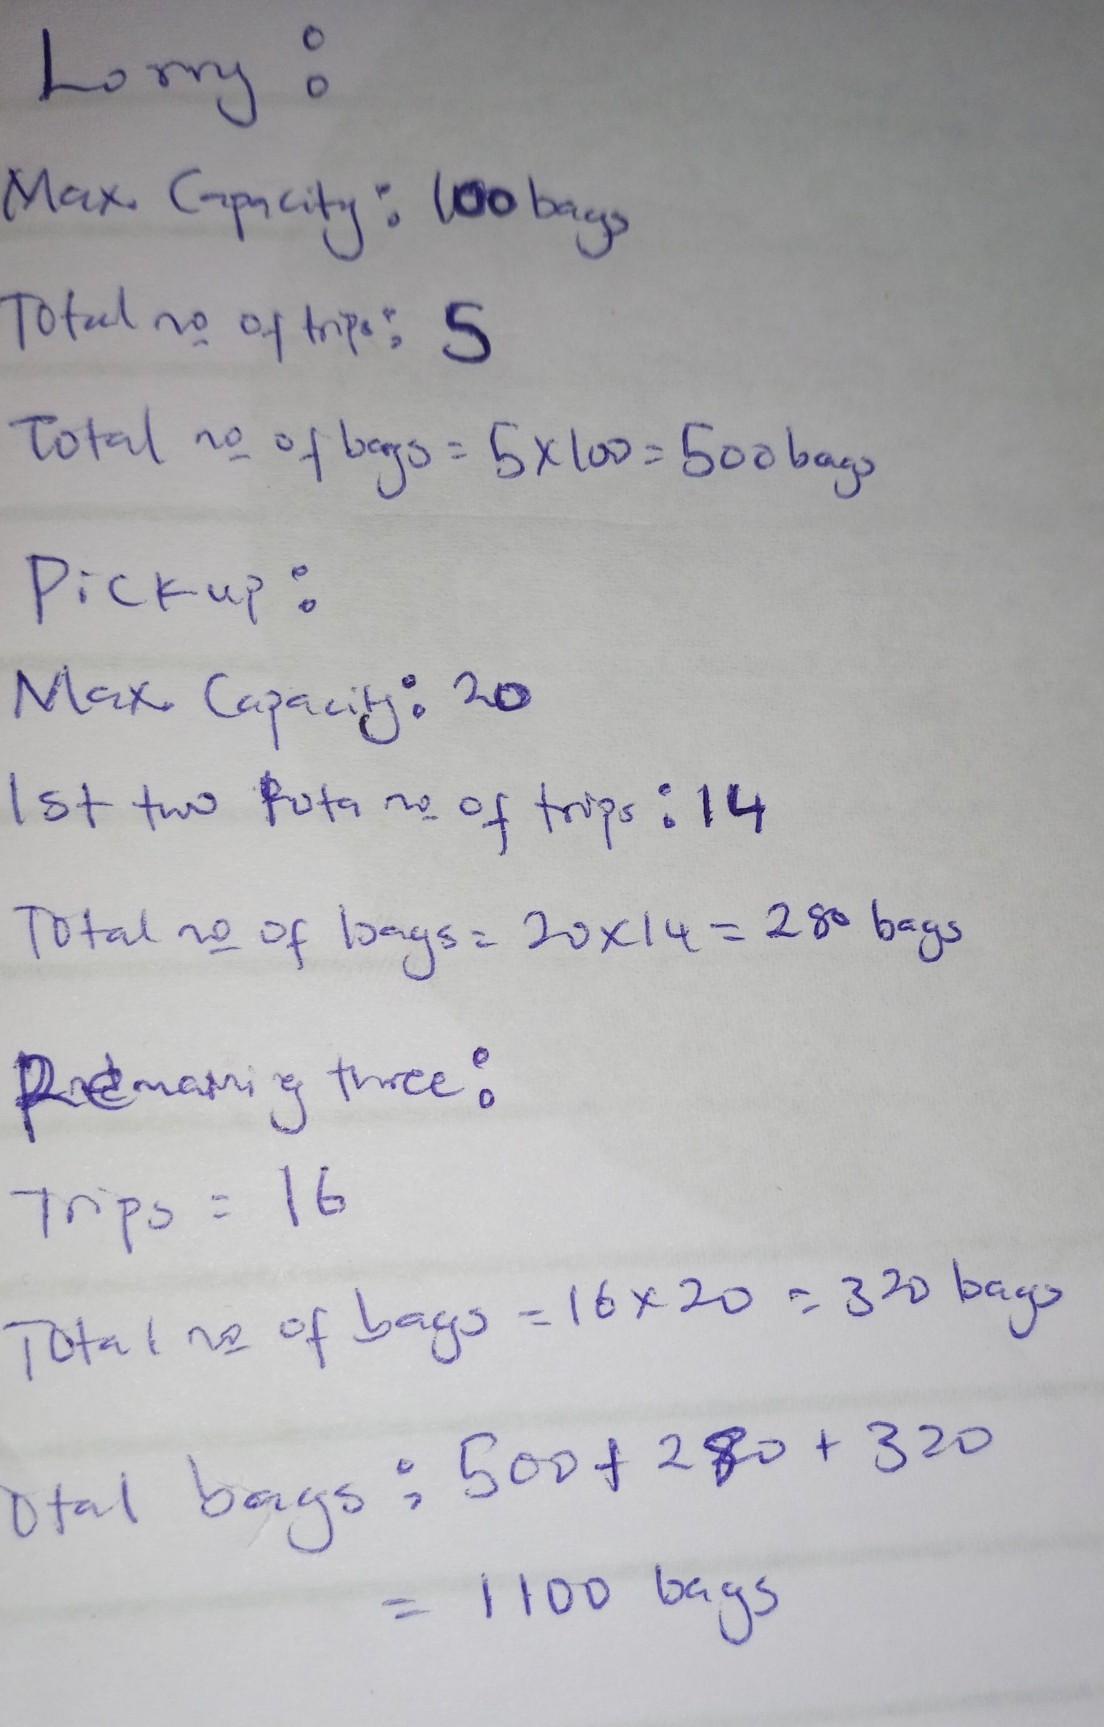 Lorry :
Max. Capacity : 100 bags
Total no of trips : 5
Total no of bags = 5 x 100 = 500 bags
Pickup :
Max. Capacity : 20
1st two no of trips : 14
Total no of bags = 20 x 14 = 280 bags
three :
Trips = 16
Total no of bags = 16 x 20 = 320 bags
otal bags : 500 + 280 + 320
= 1100 bags